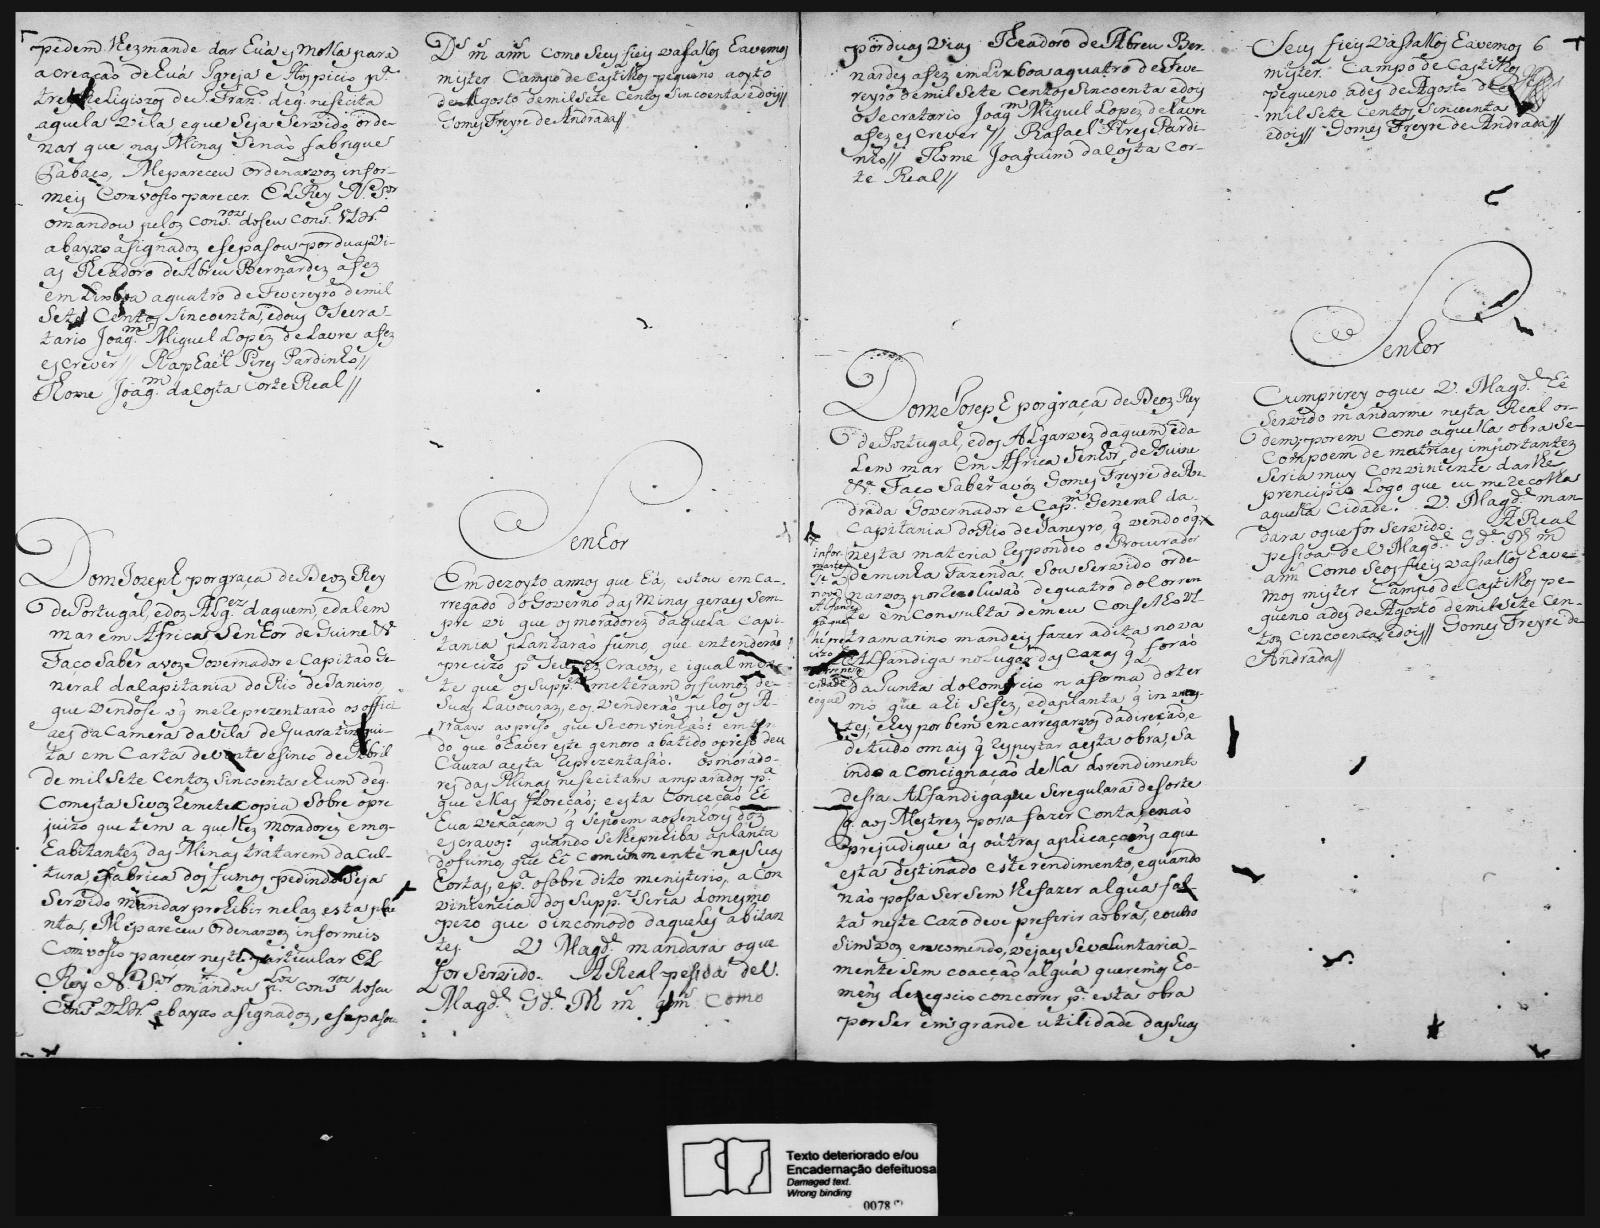 pedem lhez mande dar huã esmolla para
a creação de huã Igreja e Hospicio p.ª
trez Religiozos de S. Fran.co de q. nesecita
aquela Vila, e que seja servido orde-
nar que nas Minas se não fabrique
Tabaco, Me pareceu ordenarvos infor-
meis com vosso parecer. El Rey N. S.or
o mandou pelos cons.ros do seu cons.º Ultr.º
abayxo asignados, e se pasou por duas vi-
as Theadoro de Abreu Bernardez a fez
em Lixboa a quatro de Fevereyro de mil
Sete Centos Sincoenta, e dois O Secra-
tario Joaq.m Miguel Lopez de Lavre a fez
escrever // Raphael Pires Pardinho //
Thome Joaq.m da Costa Corte Real //
Dom Jozeph por graça de Deoz Rey
de Portugal, e doz Alg.ez daquem, e dalem
mar em Africa Senhor de Guine &ª
Faço saber a voz Governador e Capitão Ge-
neral da Capitania do Rio de Janeiro,
que vendose o q me reprezentarão os offici
aes da Camera da Vila de Guaratingui-
ta em Carta de vinte e sinco de Abril
de mil Sete Centoz Sincoenta e hum de q.
Com esta se voz remete copia Sobre o pre
juizo que tem aquellez Moradorez e maz
habitantez das Minas tratarem da Cul-
tura, e fabrica dos fumos pedindo Seja
Servido mandar prohibir nelas esta pla
nta, Me pareceu Ordenarvoz informeis
Com vosso parecer neste particular El
Rey N. S.or o mandou p.los cons.ros do seu
Cons.º Ultr.º abayxo asignadoz, e se pasou
D.s m.s ann.s como Seus fieis vasallos havemos
mister Campo de Castilhos pequeno a oyto
de Agosto de mil sete Centos Sincoenta e dois //
Gomes Freyre de Andrada //
Senhor
Em dezoyto annos que há, estou em ca-
rregado do Governo das Minas geraes Sem-
pre vi que os moradorez daquela Capi-
tania plantarão fumo, que entenderão
precizo p.ª Seus Cravos, e igual men
te que os Supp.es meteram os fumos de
Suas Lavouras, e os venderão pelos
ao preso que se convinhão: enten
do que o haver este genoro abatido o preso deu
Cauza a esta reprezentasão. Os morado-
res das Minas nesecitam amparados p.ª
que ellas floreção, e esta Conceção hé
hua vexaçam q se poem aos Senhores doz
escravos: quando se lhe prohiba a planta
do fumo, que hé comummente nas suas
hortas, e p.ª o sobre dito menisterio, a Con
viniencia dos Supp.es Seria do mesmo
pezo que o incomodo daqueles abitan
tes. V Mag.de mandará o que
for servido. A Real pesoa de V.
Mag.de G.de D.s m.s ann.s Como
por duas vias Theadoro de Abreu Ber-
nardes a fez em Lixboa a quatro de Feve-
reyro de mil sete Centos Sincoenta e dois
O Secratario Joaq.m Miguel Lopez de Lavre
a fez escrever // Rafael Pires Pardi-
nho // Thome Joaquim da Costa Cor-
te Real //
Dom Joseph por graça de Deoz Rey
de Portugal, e dos Algarvez daquem e da
lem mar em Africa Senhor de Guine
&ª. Faço Saber a vóz Gomes Freyre de An
drada Governador e Cap.m General da
Capitania do Rio de Janeyro, q vendo o q
nesta materia respondeo o Procurador
de minha Fazenda. Sou Servido orde
narvoz por rezolusão de quatro do Corren
te em Consulta de meu Conselho Ul
tramarino mandeis fazer a dita nova
Alfandiga no lugar das cazas q. forão
da Junta do Comercio na forma do ter
mo que ahi se fez, e da planta
tes, e Hey por bem encarregarvoz da direção, e
de tudo o mais q respeytar a esta obra, Sa
indo a Concignação della do rendimento
desta Alfandiga que se regulara de sorte
q. aos Mestrez possa fazer Conta, e não
prejudique ás outras aplicaçõens a que
está destinado este rendimento, e quando
não possa Ser sem lhe fazer algua fal
ta neste cazo deve preferir a obra, e outro
Sim voz encomendo, vejaes Se voluntaria-
mente Sem coacção algua querem os ho-
mens de negocio concorrer p.ª esta obra
por Ser em grande utilidade das suas
infor-
novo
cidade
e o que
Seus fieis Vasallos havemos 6
mister. Campo de Castilhos
pequeno a des de Agosto de
mil sete Centos, Sincoenta
e dois // Gomes Freyre de Andrada //
Senhor
Cumprirey o que V. Mag.de hé
Servido mandarme nesta Real or-
dem; porem Como aquella obra Se
Compoem de matriaes importantez
Seria muy Conviniente darlhe
prencipio Logo que eu me recolha
aquela Cidade. V. Mag.de man-
dara o que for servido. A Real
pesoa de V Mag.de G.de D.s m.s
ann.s Como Seos fieis vasallos have
mos mister Campo de Castilhos pe-
queno a des de Agosto de mil Sete Cen-
tos Cincoenta, e dois // Gomes Freyre de
Andrada //
Texto deteriorado e/ou
Encadernação defeituosa
Damaged text.
Wrong binding
0078 (*)